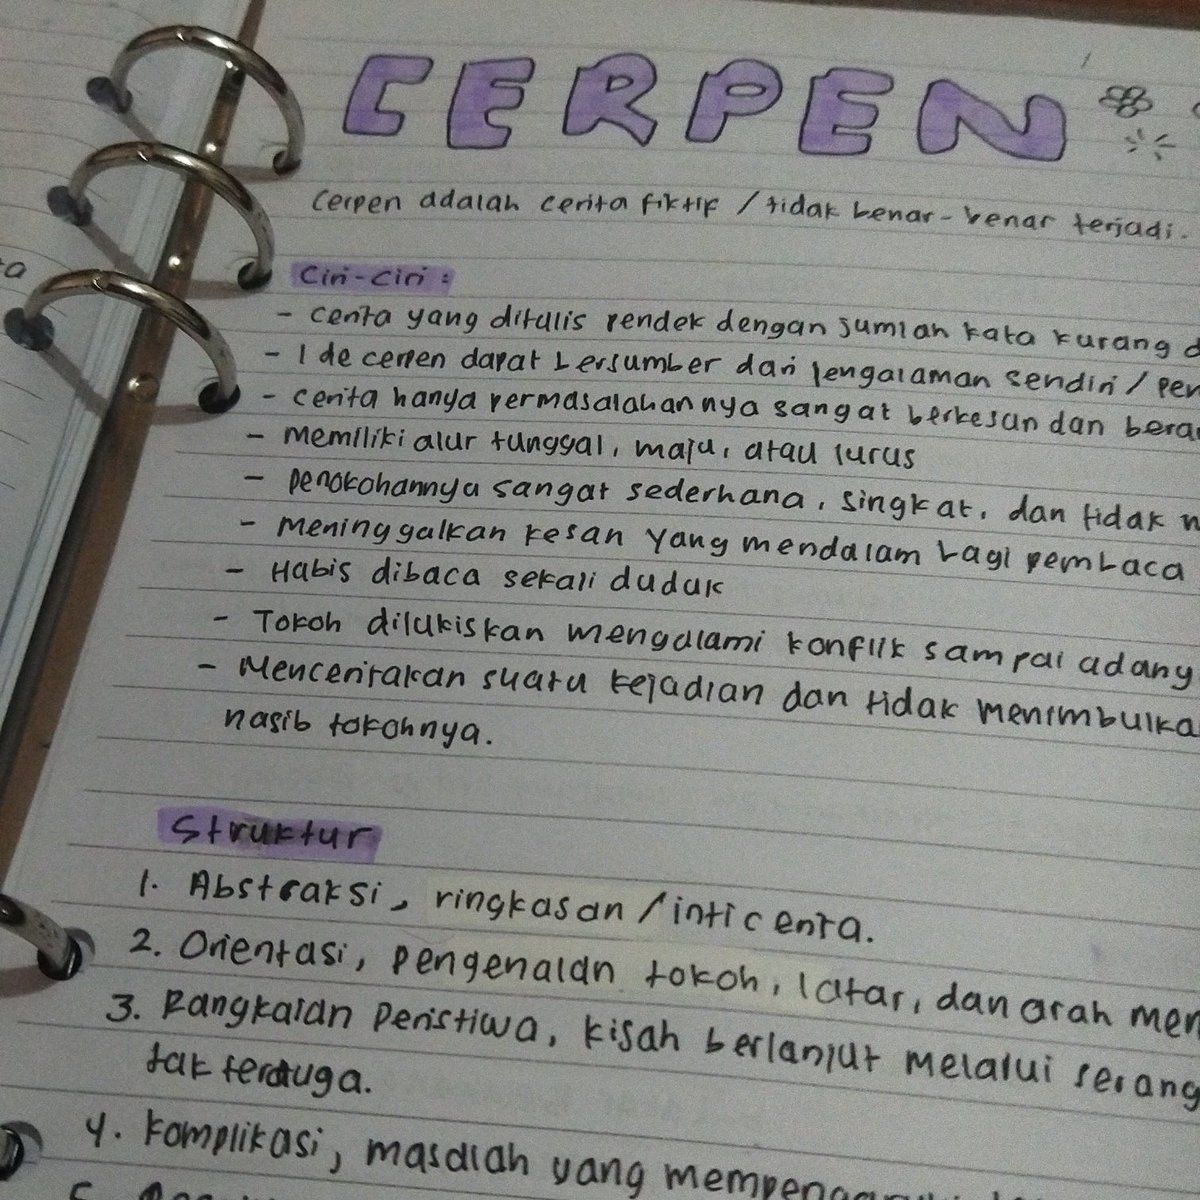 CERPEN
Cerpen adalah cerita fiktif / tidak benar-benar terjadi.
Ciri-ciri :
- cerita yang ditulis pendek dengan jumlah kata kurang d
- Ide cerpen dapat bersumber dari pengalaman sendiri / pen
- cerita hanya permasalahannya sangat berkesan dan bera
- memiliki alur tunggal, maju, atau lurus
- penokohannya sangat sederhana, singkat, dan tidak m
- meninggalkan kesan yang mendalam bagi pembaca
- Habis dibaca sekali duduk
- Tokoh dilukiskan mengalami konflik sampai adany
- Menceritakan suatu kejadian dan tidak menimbulka
nasib tokohnya.
Struktur
1. Abstraksi, ringkasan / inti cerita.
2. Orientasi, pengenalan tokoh, latar, dan arah men
3. Rangkaian peristiwa, kisah berlanjut melalui serang
tak terduga.
4. Komplikasi, masalah yang